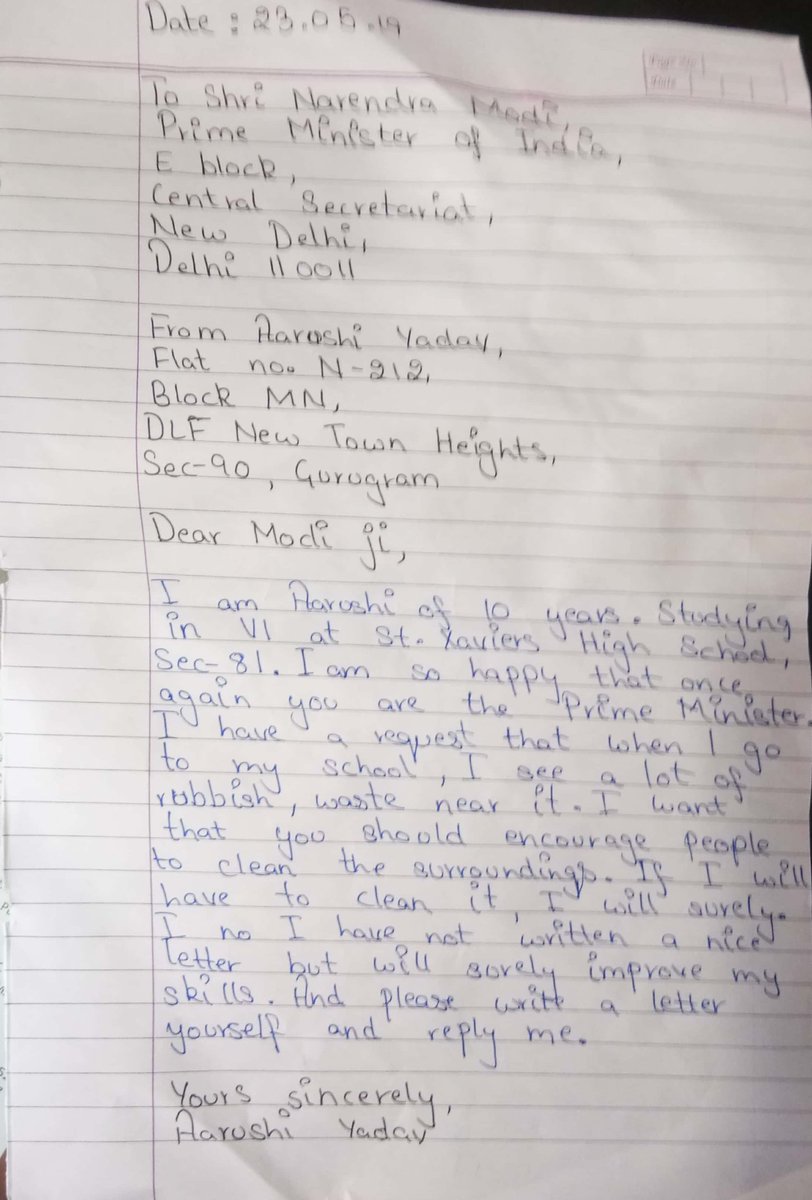 Date : 23.05.19
To Shri Narendra Modi,
Prime Minister of India,
E block,
Central Secretariat,
New Delhi,
Delhi 110011
From Aarushi Yadav,
Flat no. N-212,
Block MN,
DLF New Town Heights,
Sec-90, Gurugram
Dear Modi ji,
I am Aarushi of 10 years. Studying
in VI at St. Xaviers High School,
Sec-81. I am so happy that once
again you are the Prime Minister.
I have a request that when I go
to my school, I see a lot of
rubbish, waste near it. I want
that you should encourage people
to clean the surroundings. If I will
have to clean it, I will surely.
I no I have not written a nice
letter but will surely improve my
skills. And please write a letter
yourself and reply me.
Yours sincerely,
Aarushi Yadav